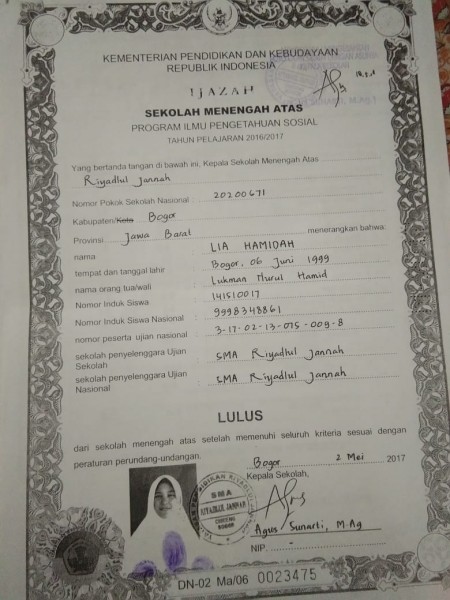 KEMENTERIAN PENDIDIKAN DAN KEBUDAYAAN
REPUBLIK INDONESIA
IJAZAH
SEKOLAH MENENGAH ATAS
PROGRAM ILMU PENGETAHUAN SOSIAL
TAHUN PELAJARAN 2016/2017
Yang bertanda tangan di bawah ini, Kepala Sekolah Menengah Atas
Riyadlul Jannah
Nomor Pokok Sekolah Nasional : 20200671
Kabupaten/Kota Bogor
Provinsi Jawa Barat menerangkan bahwa:
nama : LIA HAMIDAH
tempat dan tanggal lahir : Bogor, 06 Juni 1999
nama orang tua/wali : Lukman Nurul Hamid
Nomor Induk Siswa : 141510017
Nomor Induk Siswa Nasional : 9998348861
nomor peserta ujian nasional : 3-17-02-13-075-009-8
sekolah penyelenggara Ujian Sekolah : SMA Riyadlul Jannah
sekolah penyelenggara Ujian Nasional : SMA Riyadlul Jannah
LULUS
dari sekolah menengah atas setelah memenuhi seluruh kriteria sesuai dengan
peraturan perundang-undangan.
Bogor, 2 Mei 2017
Kepala Sekolah,
SMA
RIYADLUL JANNAH
BOGOR
Agus Sunarti, M.Ag
NIP. -
DN-02 Ma/06 0023475